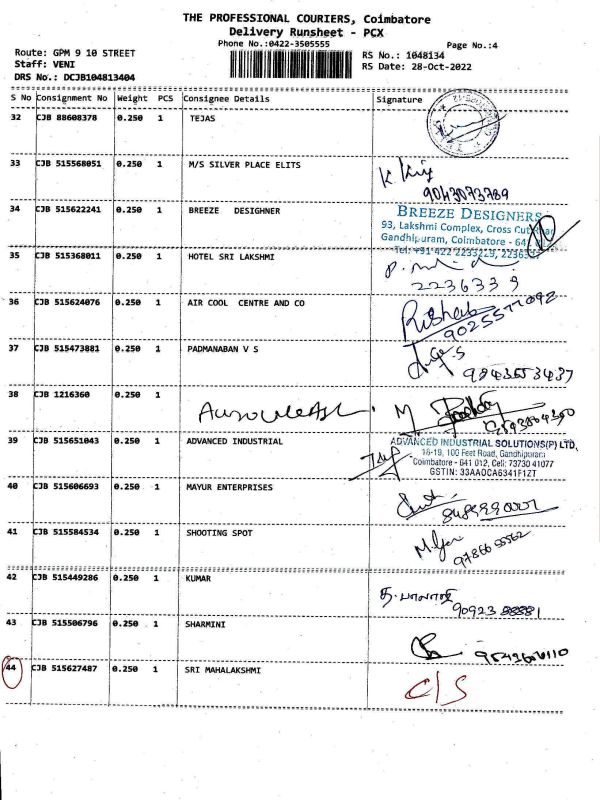 THE PROFESSIONAL COURIERS, Coimbatore
Delivery Runsheet - PCX
Phone No.:0422-3505555
Page No.:4
Route: GPM 9 10 STREET
RS No.: 1048134
Staff: VENI
RS Date: 28-Oct-2022
DRS No.: DCJB104813404
S No Consignment No Weight PCS Consignee Details Signature
32 CJB 88608378 0.250 1 TEJAS
33 CJB 515568051 0.250 1 M/S SILVER PLACE ELITS
9043073789
34 CJB 515622241 0.250 1 BREEZE DESIGHNER
BREEZE DESIGNERS
93, Lakshmi Complex, Cross Cut
Gandhipuram, Coimbatore - 641
Tel: +91 422 2233229,
35 CJB 515368011 0.250 1 HOTEL SRI LAKSHMI
2236339
36 CJB 515624076 0.250 1 AIR COOL CENTRE AND CO
Rishab
9025577092
37 CJB 515473881 0.250 1 PADMANABAN V S
9843553437
38 CJB 1216360 0.250 1
39 CJB 515651043 0.250 1 ADVANCED INDUSTRIAL
ADVANCED INDUSTRIAL SOLUTIONS(P) LTD,
18-19, 100 Feet Road, Gandhipuram
Coimbatore - 641 012, Cell: 73730 41077
GSTIN: 33AAOCA6341F1ZT
40 CJB 515606693 0.250 1 MAYUR ENTERPRISES
41 CJB 515584534 0.250 1 SHOOTING SPOT
42 CJB 515449286 0.250 1 KUMAR
43 CJB 515506796 0.250 1 SHARMINI
44 CJB 515627487 0.250 1 SRI MAHALAKSHMI
C/S